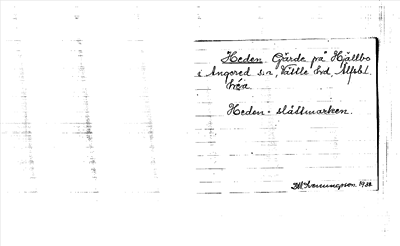 Heden Gärde på Hjällbo
i Angered sn, Vättle hd, Älfsb.l.
Heden = slåttmarken.
1932